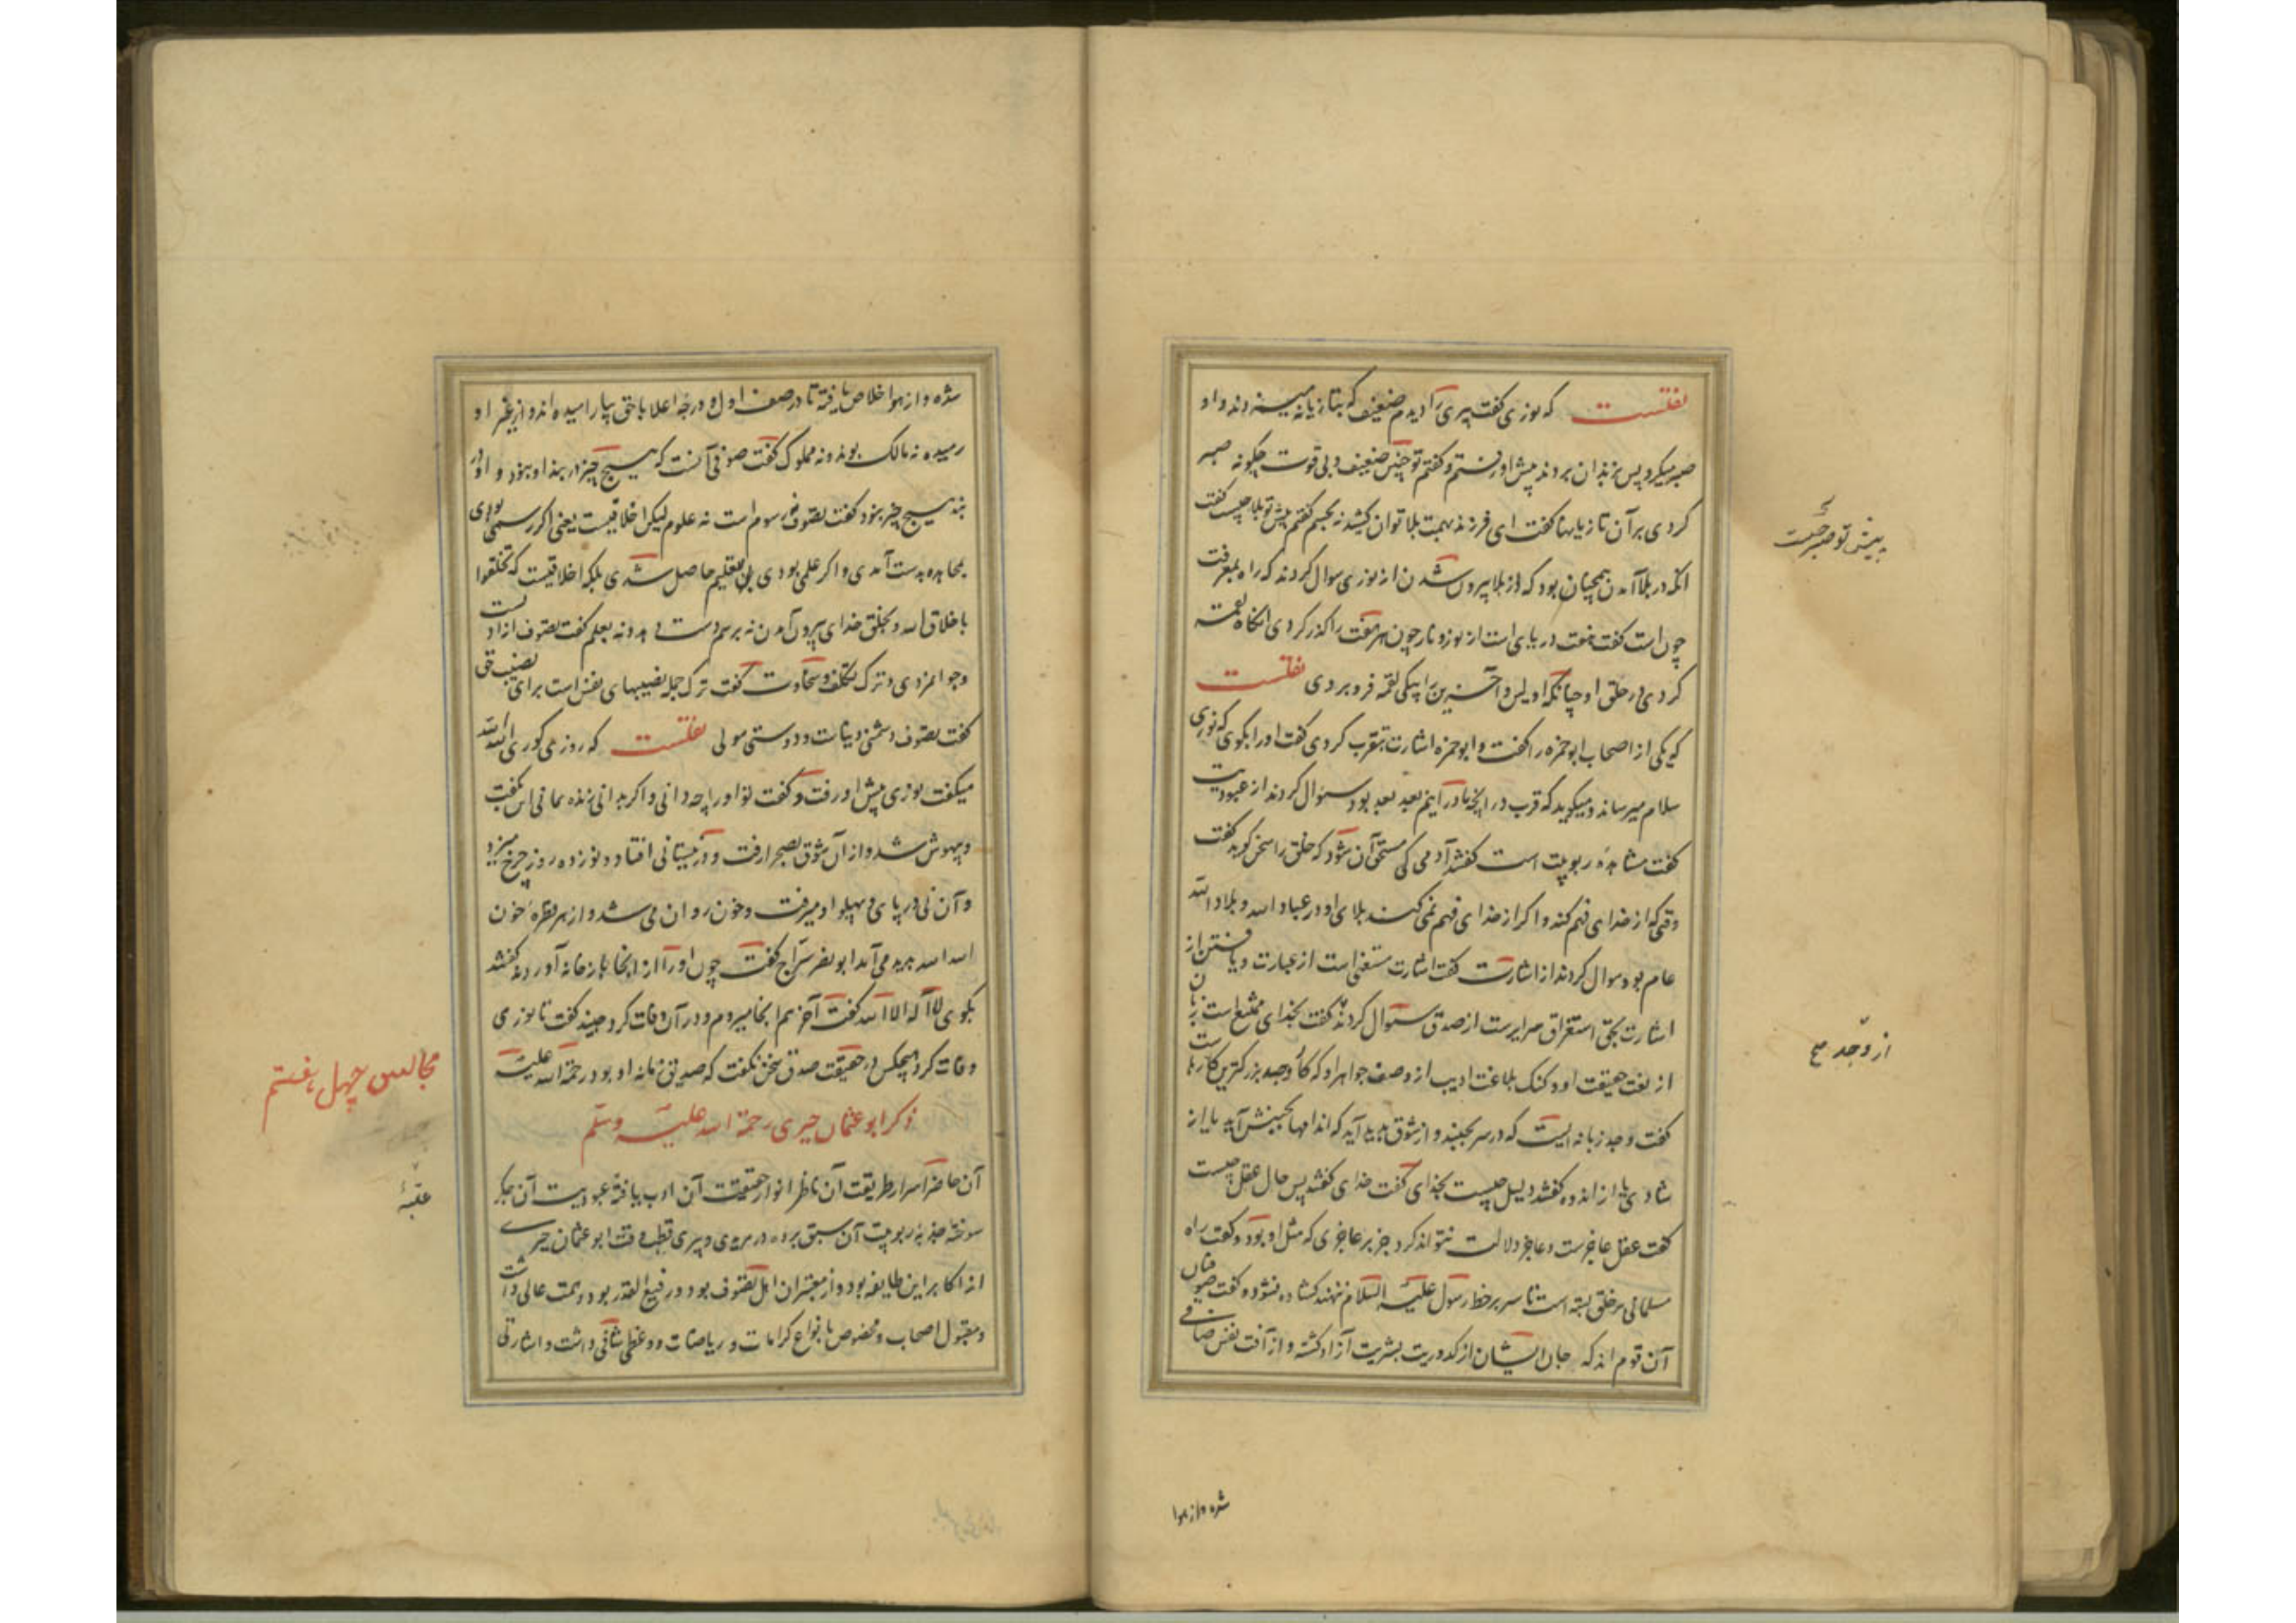 نقلست که نوری گفت پیری را دیدم ضعیف که بتازیانه میزدند و او
صبر میکرد پس بزندان بردند پیش او رفتم و گفتم تو چنین ضعیف و بی قوت چگونه صبر
کردی بر آن تازیانها گفت ای فرزند بهمت بلا توان کشید نه بجسم گفتم پیش تو بلا چیست گفت
آنکه در بلا آمدن همچنان بود که از بلا بیرون شدن از نوری سوال کردند که راه بمعرفت
چون است گفت هفت دریای است از نور و نار چون هر هفت را گذر کردی آنگاه لقمه
کردی در حلق او چنانکه اولین و آخرین را بیکی لقمه فرو بردی نقلست
که یکی از اصحاب ابو حمزه را گفت و ابو حمزه اشارت بقرب کردی گفت او را بگوی که نوری
سلام میرساند و میگوید که قرب در آنچه ما درآنیم بعد بعد بود سوال کردند از عبودیت
گفت مشاهدهٔ ربوبیت است گفتند آدمی کی مستحق آن شود که خلق را سخن گوید گفت
وقتی که از خدای فهم کند و اگر از خدای فهم نمی کند بلای او در عباد الله و بلاد الله
عام بود سوال کردند از اشارت گفت اشارت مستغنی است از عبارت و یافتن از
اشارت بحق استغراق سرایرست از صدق سوال کردند گفت بخدای ممتنع است زبان
از نعت حقیقت او و گنک بلاغت ادیب از وصف جواهر او که کار وجد بزرگترین کارهاست
گفت وجد زبانه ایست که در سر بجنبد و از شوق پدید آید که اندامها بجنبش آید یا از
شادی یا از اندوه گفتند دلیل چیست بخدای گفت خدای گفتند پس حال عقل چیست
گفت عقل عاجزست و عاجز دلالت نتواند کرد جز بر عاجزی که مثل او بود و گفت راه
مسلمانی بر خلق بسته است تا سر بر خط رسول علیه السلام ننهند گشاده نشود و گفت صوفیان
آن قوم اند که جان ایشان از کدورت بشریت آزاد گشته و از آفت نفس صافی
پیش تو صبر چیست
از وجد صح
شده و از هوا
شده و از هوا خلاص یافته تا در صف اول و درجه اعلا با حق بیارامیده اند و از غیر او
رمیده نه مالک بوند و نه مملوک گفت صوفی آنست که هیچ چیز در بند او نبود و او در
بند هیچ چیز نبود گفت تصوف نه رسوم است نه علوم لیکن اخلاقیست یعنی اگر رسمی بودی
بمجاهده بدست آمدی و اگر علمی بودی بتعلیم حاصل شدی بلکه اخلاقیست که تخلقوا
باخلاق الله و بخلق خدای بیرون آمدن نه برسم دست دهد و نه بعلم گفت تصوف ازادیست
و جوانمردی و ترک تکلف و سخاوت گفت ترک جمله نصیبهای نفس است برای نصیب حق
گفت تصوف دشمنی دنیاست و دوستی مولی نقلست که روزی کوری الله الله
میگفت نوری پیش او رفت و گفت تو او را چه دانی و اگر بدانی زنده مانی این بگفت
و بیهوش شد و از آن شوق بصحرا رفت و در نیستانی افتاد و نوزده روز چرخ میزد
و آن نی در پای و پهلو او میرفت و خون روان می شد و از هر قطرهٔ خون
الله الله پدید می آمد ابو نصر سراج گفت چون او را از انجا باز خانه آوردند گفتند
بگوی لا اله الا الله گفت آخر هم انجا میروم و در آن وفات کرد جنید گفت تا نوری
وفات کرد هیچکس در حقیقت صدق سخن نگفت که صدیق زمانه او بود رحمة الله علیه
ذکر ابو عثمان حیری رحمة الله علیه وسلم
آن حاضر اسرار طریقت آن ناظر انوار حقیقت آن ادب یافته عبودیت آن جگر
سوخته جذبه ربوبیت آن سبق برده در مریدی و پیری قطب وقت ابو عثمان حیری
از اکابر این طایفه بود و از معتبران اهل تصوف بود و رفیع القدر بود و همت عالی داشت
و مقبول اصحاب و مخصوص بانواع کرامات و ریاضات و وعظی شافی داشت و اشارتی
مجالس چهل هفتم
عتبهٔ